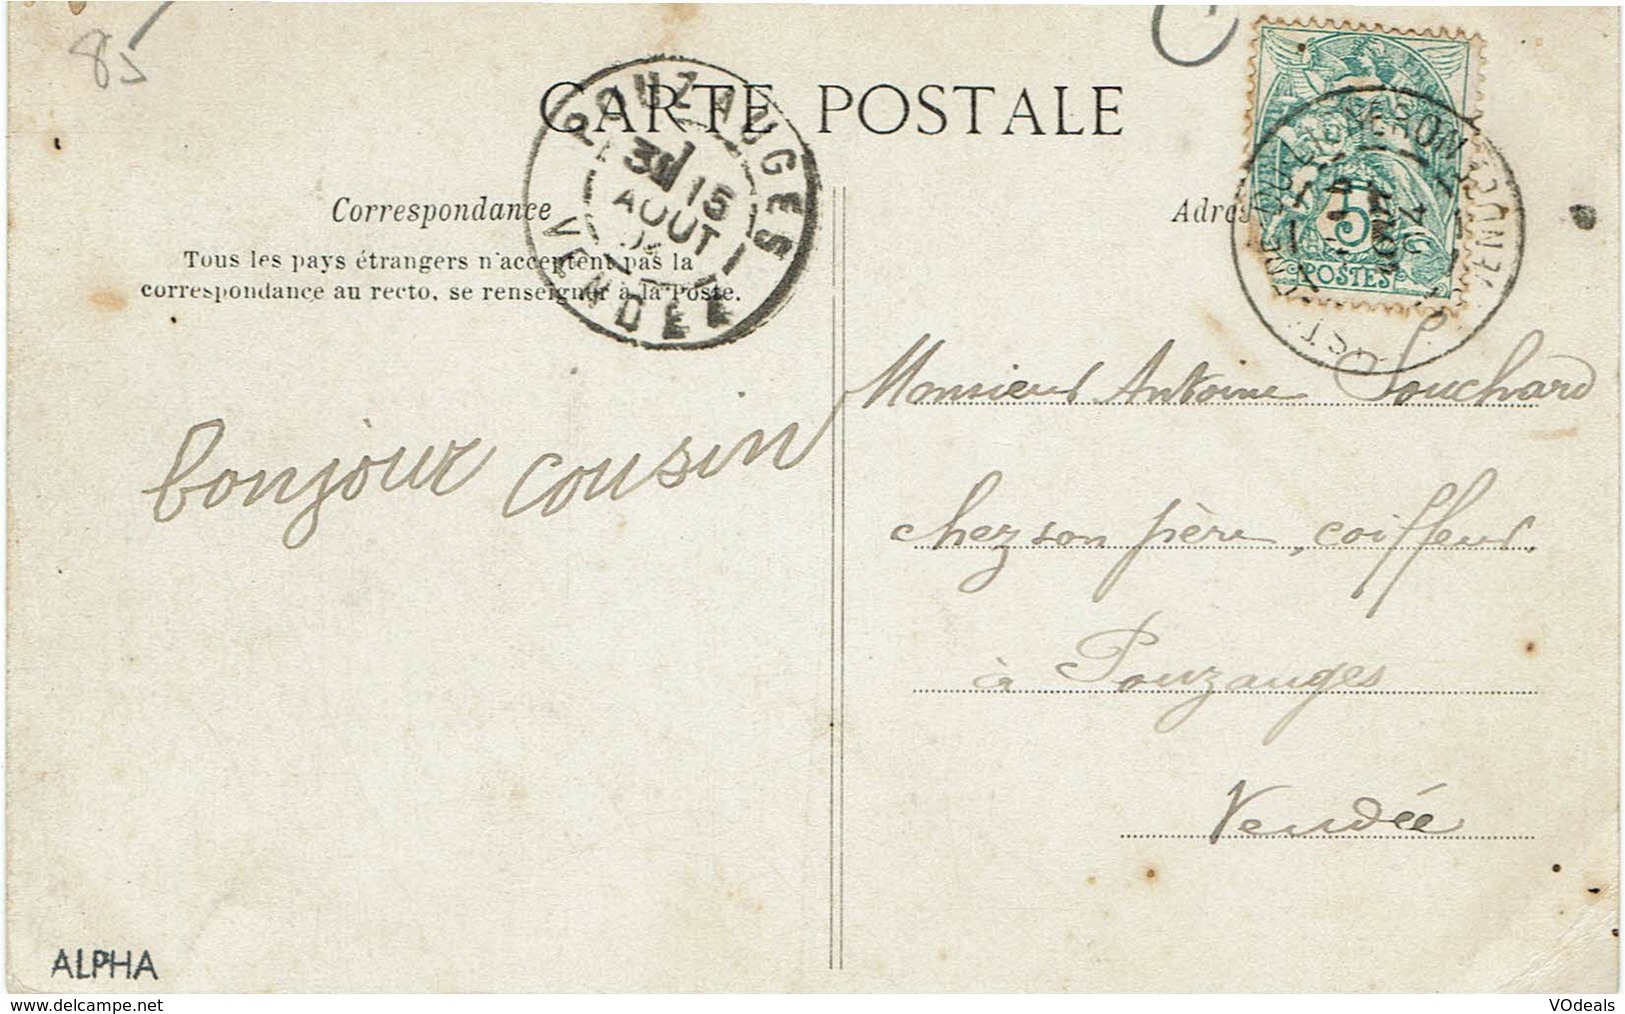 85
CARTE POSTALE
POUZAUGES
15
AOUT
VENDÉE
Correspondance
Tous les pays étrangers n'acceptent pas la
correspondance au recto, se renseigner à la Poste.
bonjour cousin
ALPHA
5
POSTES
Monsieur Antoine Souchard
chez son père, coiffeur
à Pouzauges
Vendée
www.delcampe.net
VOdeals